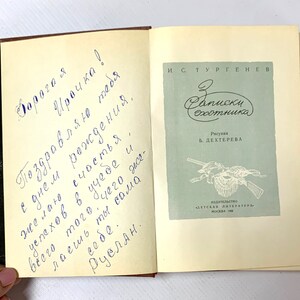 Дорогая
Ирочка!
Поздравляю тебя
с днём рождения,
желаю счастья,
успехов в учёбе и
всего того, чего же-
лаешь ты сама
себе.
Руслан.
И. С. ТУРГЕНЕВ
Записки
охотника
Рисунки
Б. ДЕХТЕРЕВА
ИЗДАТЕЛЬСТВО
ДЕТСКАЯ ЛИТЕРАТУРА
МОСКВА